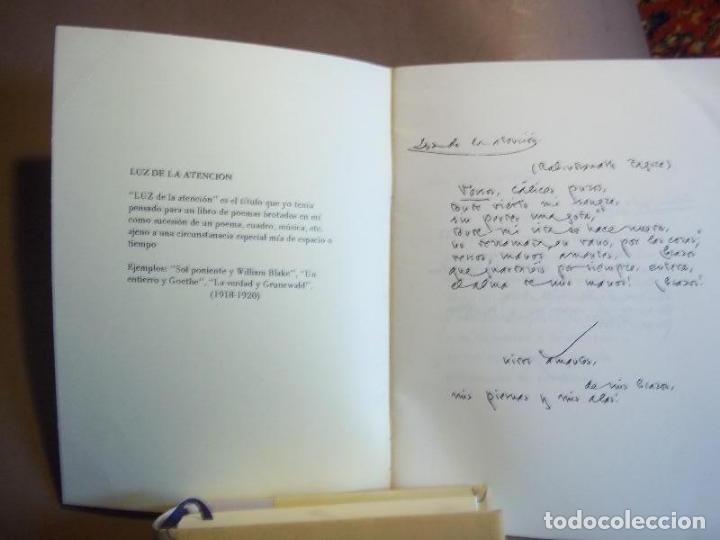 LUZ DE LA ATENCION
"LUZ de la atención" es el título que yo tenía
pensado para un libro de poemas brotados en mí
como sucesión de un poema, cuadro, música, etc.
ajeno a una circunstancia especial mía de espacio o
tiempo
Ejemplos: "Sol poniente y William Blake", "Un
entierro y Goethe", "La verdad y Grunewald".
(1918-1920)
la atención.
(Rabindranath Tagore)
Venas, cálices puros,
mi sangre,
sin perder una gota,
mi vida se hace nuestra,
no derramada en vano, por las cosas;
venas, manos amantes,
que guardáis por siempre, entera,
el alma de mis manos!
amantes,
de mis brazos,
mis piernas y mis alas!
todocoleccion.net